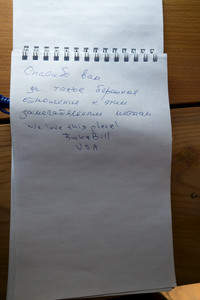 Спасибо вам
за такое бережное
отношение к этим
замечательным местам
We love this place!
Bull
USA